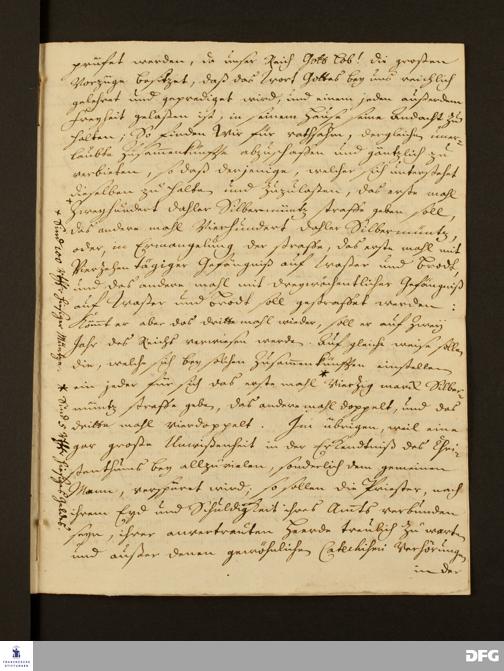 prüfet werden, da unser Reich Gott Lob! die großen
Vorzüge besitzet, daß das Wort Gottes bey uns reichlich
gelehret und geprediget wird, und einem jeden außerdem
Freyheit gelaßen ist, in seinem Hause seine Andacht zu
halten; So finden Wir für rathsahm, dergleichen uner-
laubte Zusammenkünffte abzuschaffen und gäntzlich zu
verbieten, so daß derjenige, welcher sich unterstehet
dieselben zu halten und zuzulaßen, das erste mahl
* Zweyhundert dahler Silbermüntz straffe geben soll,
das andere mahl Vierhundert dahler Silbermüntz,
oder, in Ermangelung der straffe, das erste mahl mit
Vierzehen tägiger Gefängniß auf Waßer und Brodt,
und das andere mahl mit dreywöchentlicher Gefängniß
auf Waßer und Brodt soll gestraffet werden:
Kömt er aber das dritte mahl wieder, soll er auf Zwey
Jahr des Reichs verwiesen werden. Auf gleiche weise sollen
die, welche sich bey solchen Zusammenkünfften einstellen
ein jeder für sich das erste mahl * Vierzig marck Silber-
müntz straffe geben, das andere mahl doppelt, und das
dritte mahl vierdoppelt. Im übrigen, weil eine
gar große Unwißenheit in der Erkendtniß des Chri-
stenthums bey allzuvielen, sonderlich dem gemeinen
Manne, verspüret wird; so sollen die Priester, nach
ihrem Eyd und Schuldigkeit ihres Amts verbunden
seyn, ihrer anvertrauten Heerde treulich zu warten
und außer denen gewöhnlichen Catechismi Verhörungen
in der
* Sind 100 hiesiger Müntze.
* Sind 5 hiesiges Geldes.
FRANCKESCHE
STIFTUNGEN
DFG